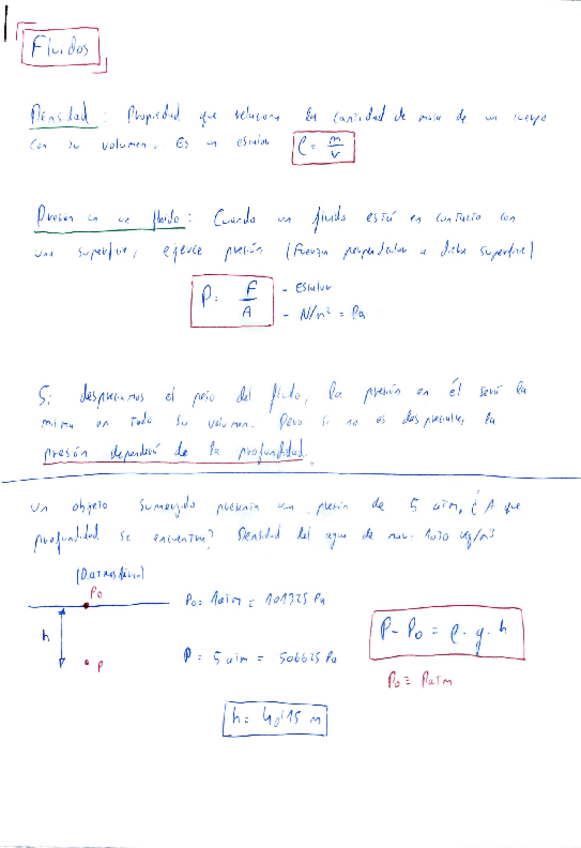 Fluidos
Densidad: Propiedad que relaciona la cantidad de masa de un cuerpo
con su volumen. Es un escalar ρ = m/V
Presión en un fluido: Cuando un fluido está en contacto con
una superficie, ejerce presión (Fuerza perpendicular a dicha superficie)
P = F/A - Escalar
- N/m² = Pa
Si despreciamos el peso del fluido, la presión en él será la
misma en todo su volumen. Pero si no es despreciable, la
presión dependerá de la profundidad.
Un objeto sumergido presenta una presión de 5 atm, ¿A que
profundidad se encuentra? Densidad del agua de mar: 1030 kg/m³
(P.atmosférica)
P₀ P₀ = 1atm = 101325 Pa
h P - P₀ = ρ · g · h
P P = 5 atm = 506625 Pa
P₀ ≡ Patm
h = 40'15 m